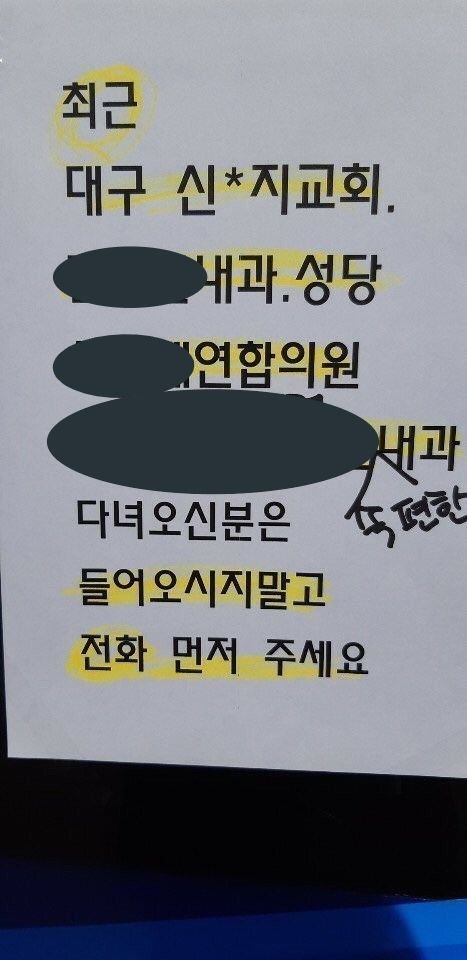 최근
대구 신*지교회.
내과.성당
연합의원
내과
속편한
다녀오신분은
들어오시지말고
전화 먼저 주세요